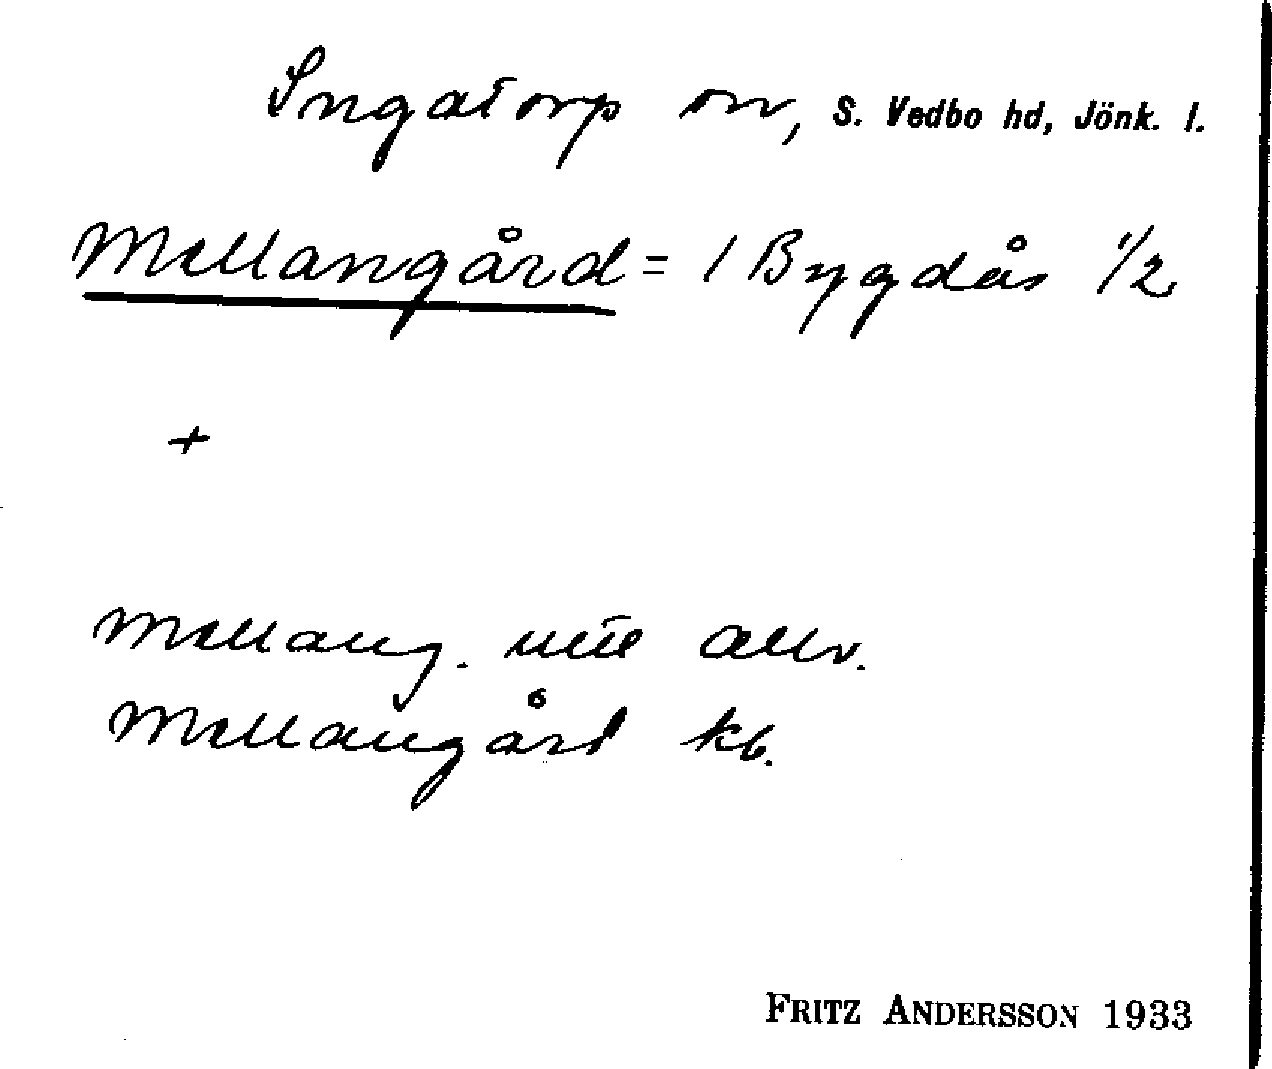 Ingatorp sn, S. Vedbo hd, Jönk. l.
Mellangård = 1 Bygdås 1/2
+
Mellang. ute allv.
Mellangård kb.
FRITZ ANDERSSON 1933